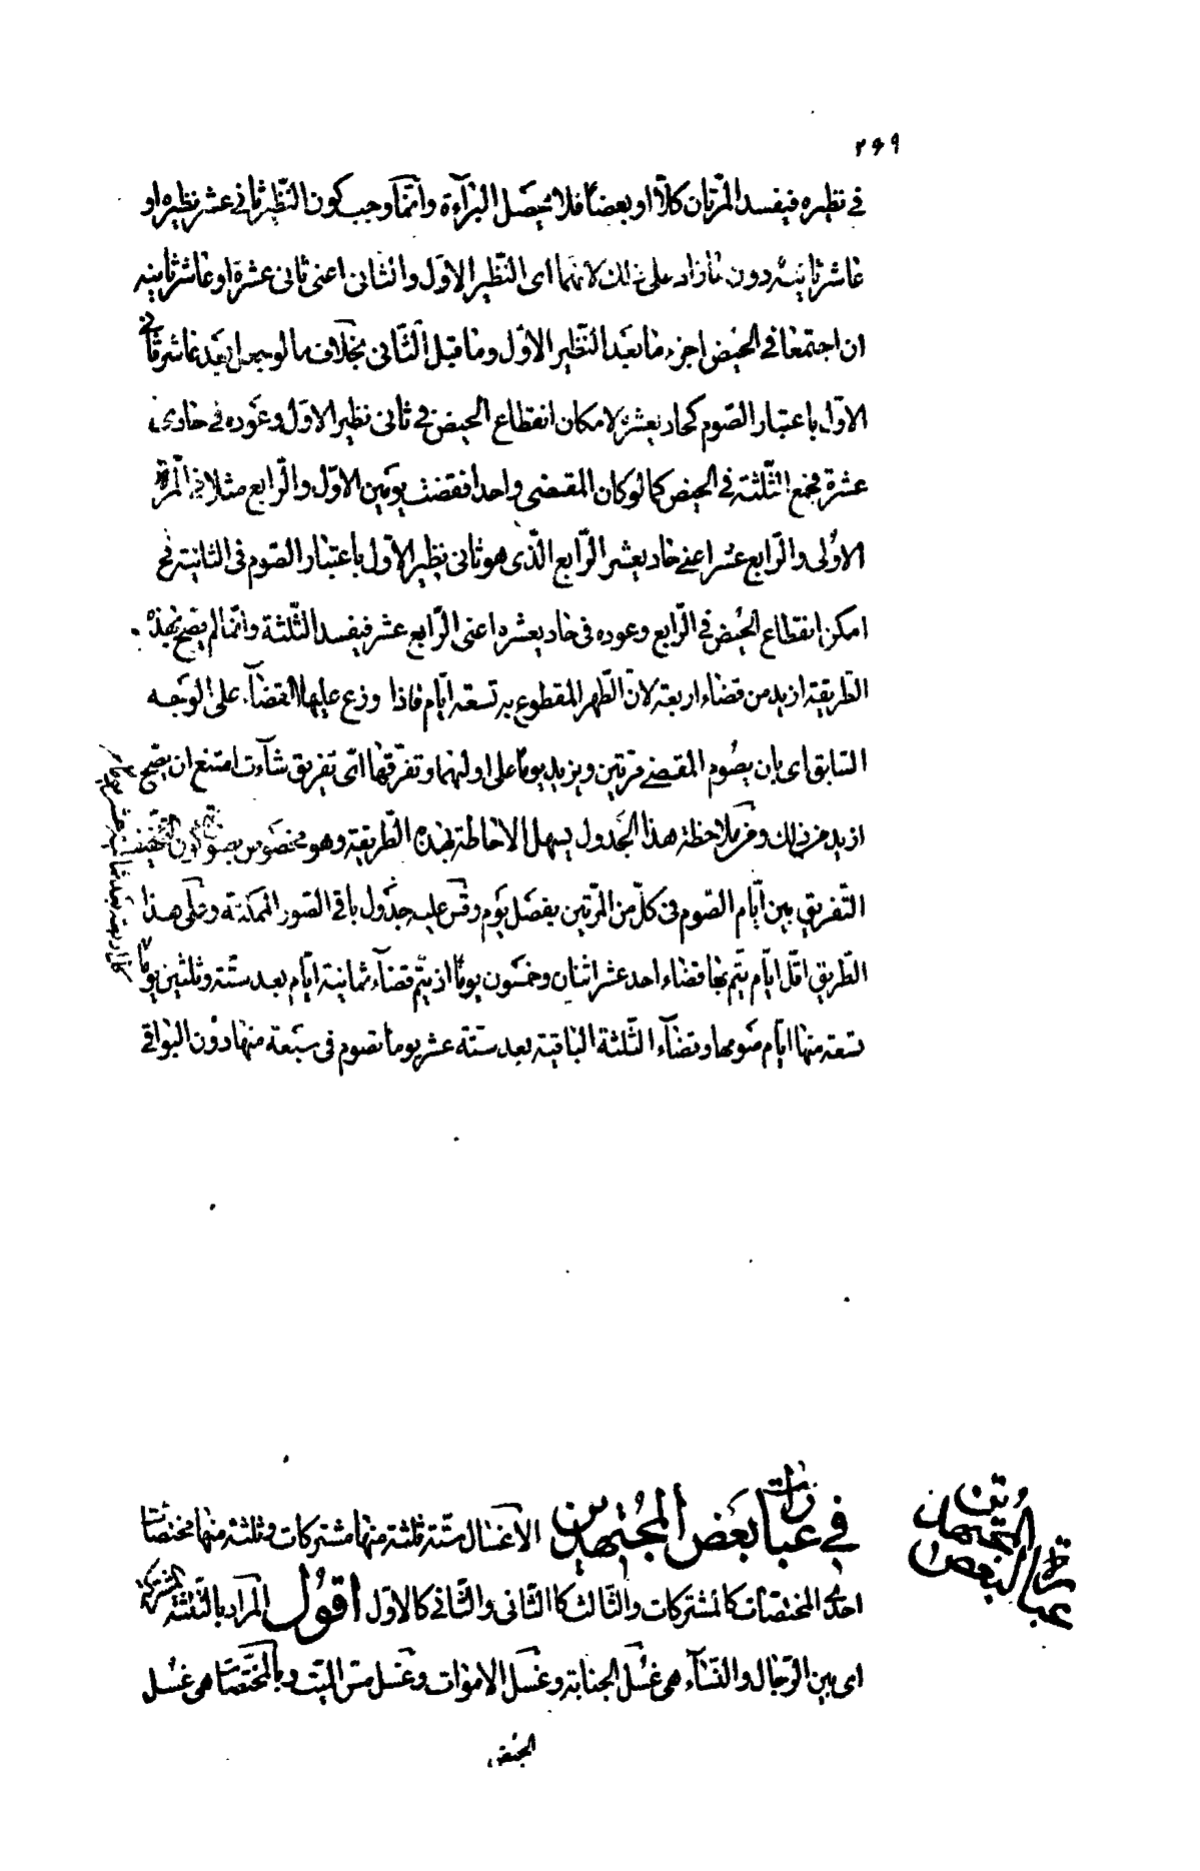 ٢٦٩
في نظيره فيفسد المرّتان كلّاً او بعضاً فلا يحصّل البرآءة وانّما وجب كون النّظير ثاني عشر نظيره او
عاشر ثانيه دون ما زاد على ذلك لانّهما اى النّظير الاوّل والثّانى اعنى ثانى عشره او عاشر ثانيه
ان اجتمعا في الحيض اجزء ما بعد النّظير الاوّل وما قبل الثّانى بخلاف ما لو جعل بعد عاشر ثانى
الاوّل باعتبار الصّوم كحاديعشره لامكان انقطاع الحيض في ثانى نظير الاوّل وعوده في حادى
عشرة فيجمع الثّلثة في الحيض كما لو كان المقضى واحدا فقضت يومين الاوّل والرّابع مثلا في المرّة
الاولى والرّابع عشر اعنى حاديعشر الرّابع الّذى هو ثانى نظير الاوّل باعتبار الصّوم فى الثانية فح
امكن انقطاع الحيض في الرّابع وعوده فى حاديعشره اعنى الرّابع عشر فيفسد الثّلثة وانّما لم يصحّ بهذه
الطّريقة ازيد من قضاء اربعة لانّ الطّهر المقطوع به تسعة ايّام فاذا وزع عليها القضآء على الوجه
السّابق اى بان يصوم المقضى مرّتين ويزيد يوما على اولهما وتفرّقها اىّ تفريق شآءت امتنع ان يصحّ
ازيد من ذلك ومن ملاحظة هذا الجدول يسهل الاحاطة بهذه الطّريقة وهو مخصوص بصورة كون
التّفريق بين ايّام الصّوم فى كلّ من المرّتين بفصل يوم وقس عليه جدول باقى الصّور الممكنة وعلى هذا
الطّريق اقلّ ايّام يتمّ بها قضاء احد عشر اثنان وخمسون يوما اذ يتمّ قضآء ثمانية ايّام بعد ستّة وثلثين يوما
تسعة منها ايّام صومها وقضآء الثّلثة الباقية بعد ستّة عشر يوما تصوم فى سبعة منها دون البواقى
كلّ اربعة بعد ثمانية عشر يوما
في عبارات بعض المجتهدين الاغسال ستّة ثلثة منها مشتركات وثلثة منها مختصّات
احد المختصّات كالمشتركات والثّالث كالثّانى والثّانى كالاوّل اقول المراد بالثّلثة المشتركة
اى بين الرّجال والنّسآء هى غسل الجنابة وغسل الاموات وغسل مسّ الميّت وبالمختصّات هى غسل
الحيض
عبارة لبعض المجتهدين